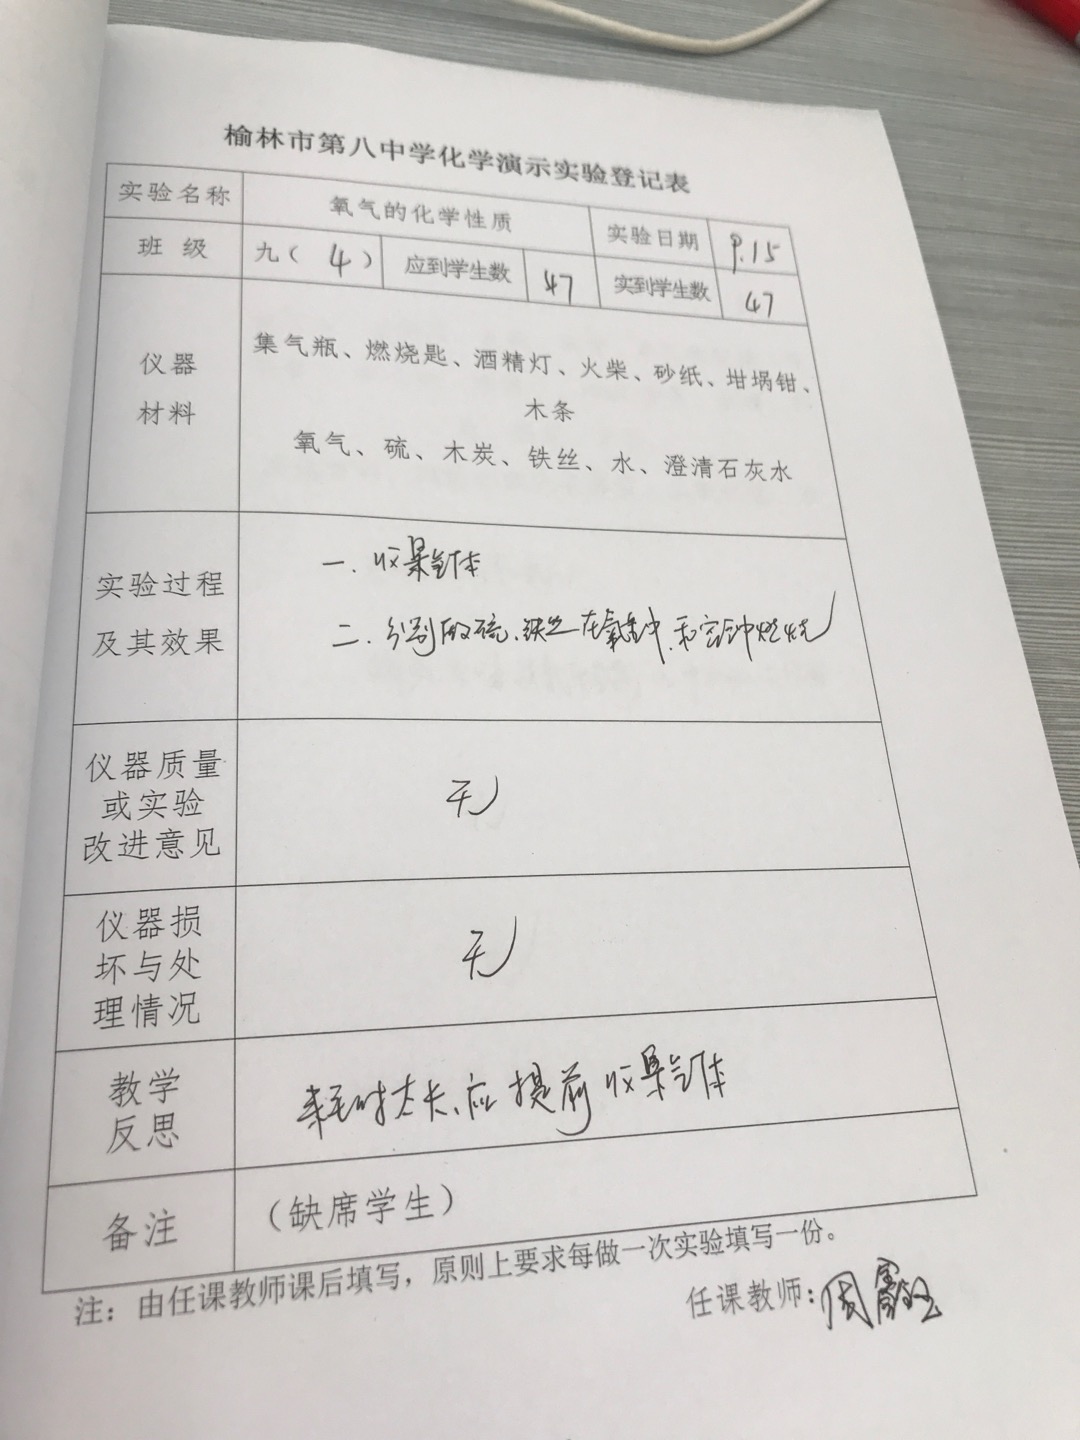 榆林市第八中学化学演示实验登记表
实验名称 氧气的化学性质 实验日期 9.15
班 级 九( 4 ) 应到学生数 47 实到学生数 47
仪器
材料
集气瓶、燃烧匙、酒精灯、火柴、砂纸、坩埚钳、
木条
氧气、硫、木炭、铁丝、水、澄清石灰水
实验过程
及其效果
一.收集气体
二.分别做硫、铁丝在氧气中.和空气中燃烧
仪器质量
或实验
改进意见
无
仪器损
坏与处
理情况
无
教学
反思
耗时太长、应提前收集气体
备注
(缺席学生)
注：由任课教师课后填写，原则上要求每做一次实验填写一份。
任课教师:周